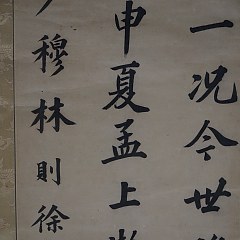 一况今世
申夏孟上
穆林則徐